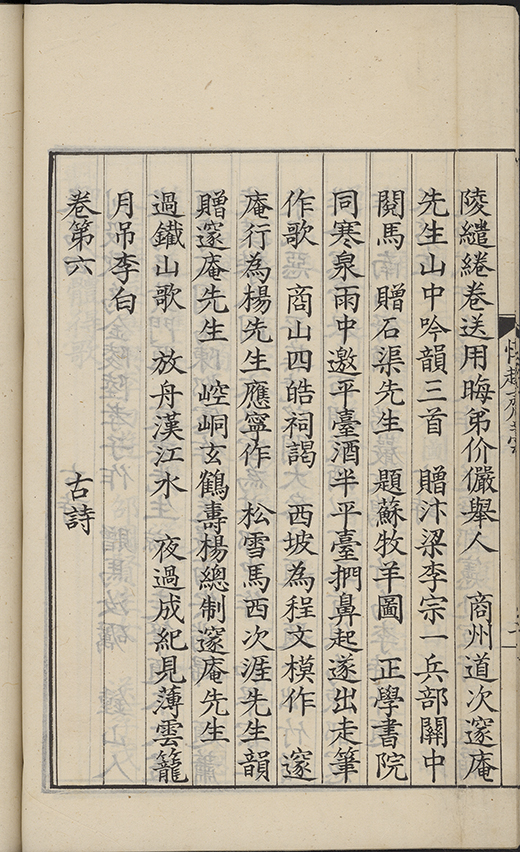 陵繾綣卷送用晦弟价儼舉人　商州道次邃庵
先生山中吟韻三首　贈汴梁李宗一兵部關中
閱馬　贈石渠先生　題蘇牧羊圖　正學書院
同寒泉雨中邀平臺酒半平臺捫鼻起遂出走筆
作歌　商山四皓祠謁　西坡為程文模作　邃
庵行為楊先生應寧作　松雪馬西次涯先生韻
贈邃庵先生　崆峒玄鶴壽楊總制邃庵先生
過鐵山歌　放舟漢江水　夜過成紀見薄雲籠
月弔李白
卷第六　古詩